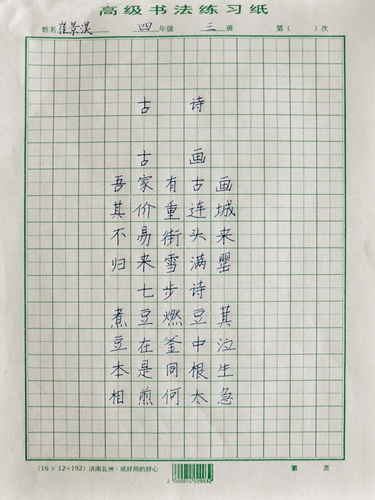 高级书法练习纸
姓名 崔景淏 四 年级 三 班 第( )次
古诗
古画
吾家有古画
其价重连城
不易街头来
归来雪满罂
七步诗
煮豆燃豆萁
豆在釜中泣
本是同根生
相煎何太急
(16×12=192) 济南五洲·纸好用的舒心 第 页